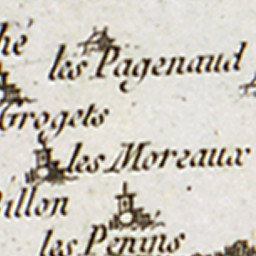 hé
les Pagenaud
Grogets
les Moreaux
illon
les Penins